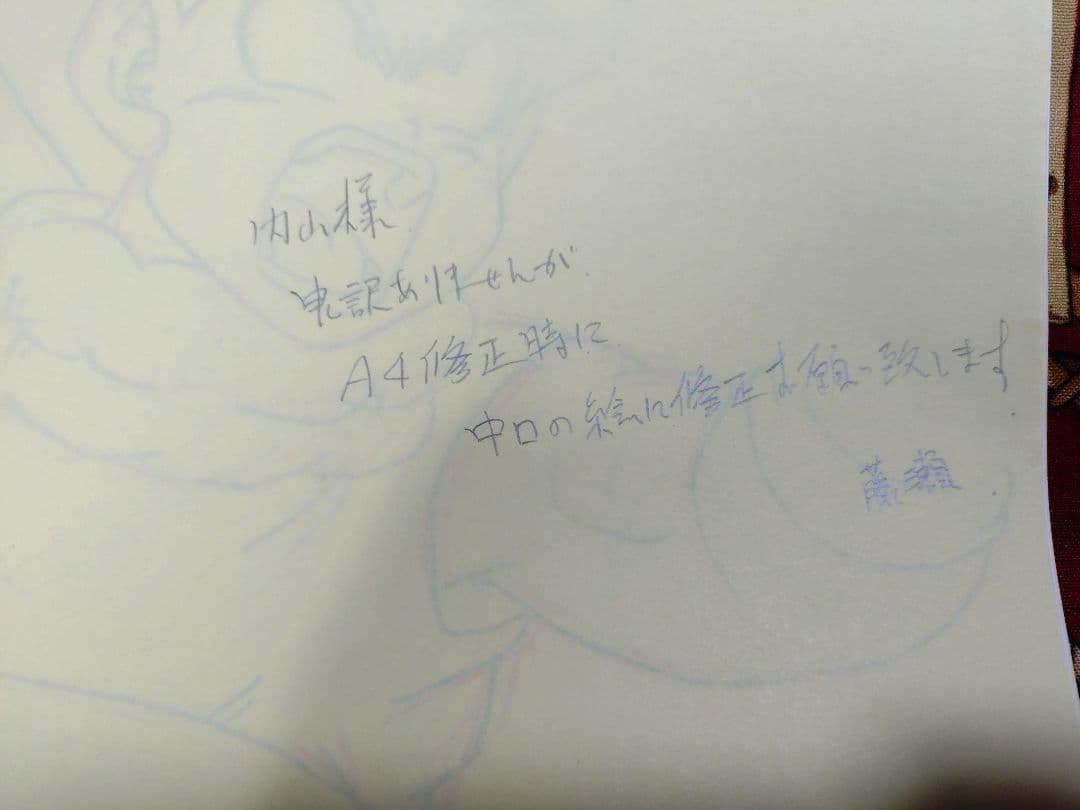 内山様
申訳ありませんが.
A4修正時に
中口の絵に修正お願い致します.